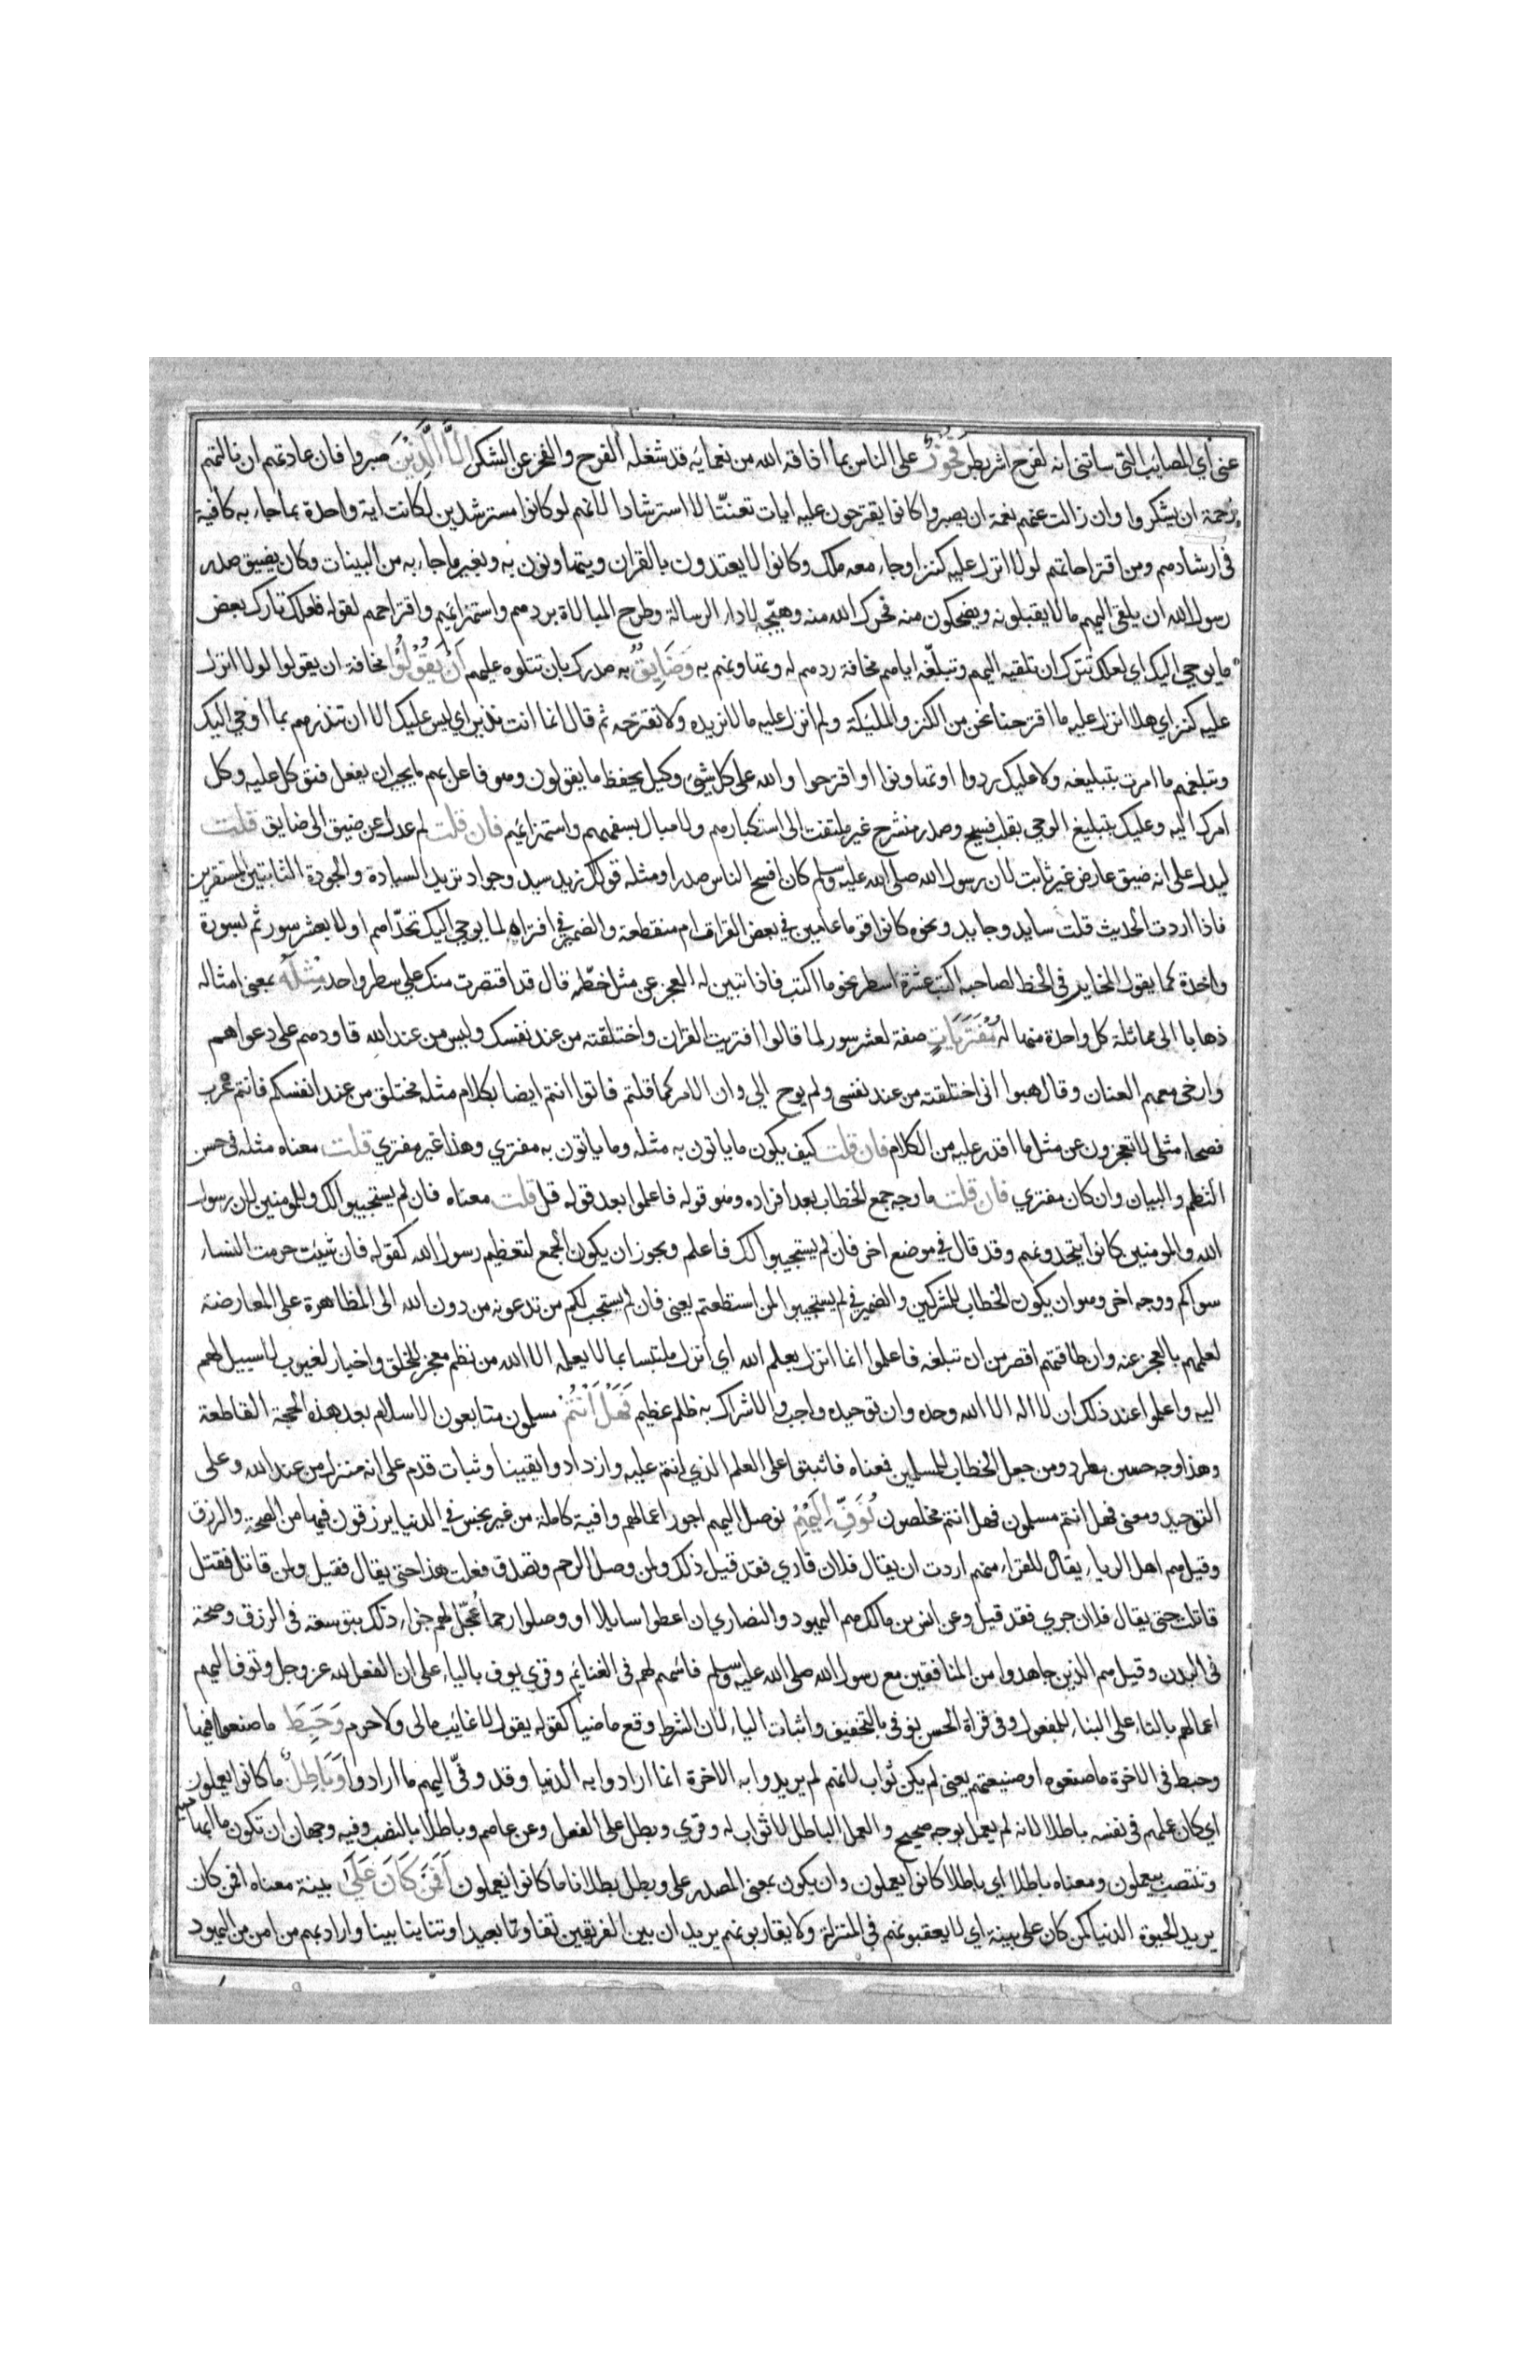 عني أي المصائب التي ساتني انه لفرح اشر بطر فَخُوْرٌ على الناس بما اذاقه الله من نعمائه قد شغله الفرح والفخر عن الشكر اِلَّا الَّذِيْنَ صبروا فان عادتهم ان نالتهم
رحمة ان يشكروا وان زالت عنهم نعمة ان يصبروا كانوا يقترحون عليه ايات تعنتّا لا استرشادا لانهم لو كانوا مسترشدين لكانت اية واحدة بما جاء به كافية
في ارشادهم ومن اقتراحاتهم لولا انزل عليه كنز او جاء معه ملك وكانوا لا يعتدون بالقران ويتهاونون به وبغيره مما جاء به من البينات وكان يضيق صدر
رسول الله ان يلقى اليهم ما لا يقبلونه ويضحكون منه فحرك الله منه وهيّجه لاداء الرسالة وطرح المبالاة بردهم واستهزائهم واقتراحهم لقوله فلعلك تارك بعض
ما يوحي اليك اي لعلك تترك ان تلقيه اليهم وتبلّغه اياهم مخافة ردهم له وتهاونهم به وَضَايِقٌ به صدرك بان تتلوه عليهم اَنْ يَقُوْلُوْا مخافة ان يقولوا لولا انزل
عليه كنز اي هلا انزل عليه ما اقترحنا نحن من الكنز والملئكة ولم انزل عليه ما لا نريده ولا نقترحه ثم قال انما انت نذير اي ليس عليك الا ان تنذرهم بما اوحي اليك
وتبلغهم ما امرت بتبليغه ولا عليك ردوا او تهاونوا او اقترحوا والله على كل شيء وكيل يحفظ ما يقولون وهو فاعل بهم ما يجب ان يفعل فتوكل عليه وكل
امرك اليه وعليك بتبليغ الوحي بقلب فسيح وصدر منشرح غير ملتفت الى استكبارهم ولا مبال بسفههم واستهزائهم فان قلت لم عدل عن ضيق الى ضايق قلت
ليدل على انه ضيق عارض غير ثابت لان رسول الله صلى الله عليه وسلم كان افسح الناس صدرا ومثله قولك زيد سيد وجواد تريد السيادة والجودة الثابتين المستقرين
فاذا اردت الحديث قلت سايد وجايد ونحوه كانوا قوما عامين في بعض القراات ام منقطعة والضمير في افتراه لما يوحي اليك تحدّاهم اولا بعشر سور ثم بسورة
واحدة كما يقول المخاير في الخط لصاحبه اكتب عشرة اسطر نحو ما اكتب فاذا تبين له العجز عن مثل خطّه قال قد اقتصرت منك على سطر واحد مِثْلِهِ بمعنى امثاله
ذهابا الى مماثلة كل واحدة منها له مُفْتَرَيَاتٍ صفة لعشر سور لما قالوا افتريت القران واختلقته من عند نفسك وليس من عند الله قاودهم على دعواهم
وارخى معهم العنان وقال هبوا اني اختلقته من عند نفسي ولم يوح الي وان الامر كما قلتم فاتوا انتم ايضا بكلام مثله مختلق من عند انفسكم فانتم عرب
فصحاء مثلي لا تعجزون عن مثل ما اقدر عليه من الكلام فان قلت كيف يكون ما ياتون به مثله وما ياتون به مفتري وهذا غير مفتري قلت معناه مثله في حسن
النظم والبيان وان كان مفتري فان قلت ما وجه جمع الخطاب بعد افراده وهو قوله فاعلموا بعد قوله قل قلت معناه فان لم يستجيبوا لك وللمومنين لان رسول
الله والمومنين كانوا يتحدونهم وقد قال في موضع اخر فان لم يستجيبوا لك فاعلم ويجوز ان يكون الجمع لتعظيم رسول الله كقوله فان شئت حرمت النساء
سواكم ووجه اخر وهو ان يكون الخطاب للمشركين والضمير في لم يستجيبوا لمن استطعتم يعني فان لم يستجب لكم من تدعونه من دون الله الى المظاهرة على المعارضة
لعلمهم بالعجز عنه وان طاقتهم اقصر من ان تبلغه فاعلموا انما انزل بعلم الله اي انزل ملتبسا بما لا يعلمه الا الله من نظم معجز للخلق واخبار لغيوب لا سبيل لهم
اليه واعلموا عند ذلك ان لا اله الا الله وحده وان توحيده واجب والاشراك به ظلم عظيم فَهَلْ اَنْتُمْ مسلمون متابعون الاسلام بعد هذه الحجة القاطعة
وهذا وجه حسن مطرد ومن جعل الخطاب للمسلمين فمعناه فاثبتوا على العلم الذي انتم عليه وازدادوا يقينا وثبات قدم على انه منزل من عند الله وعلى
التوحيد ومعنى فهل انتم مسلمون فهل انتم مخلصون نُوَفِّ اِلَيْهِمْ نوصل اليهم اجور اعمالهم وافية كاملة من غير بخس في الدنيا يرزقون فيها من الصحة والرزق
وقيل هم اهل الرياء يقال للقراء منهم اردت ان يقال فلان قاري فقد قيل ذلك ولمن وصل الرحم وتصدق فعلت هذا حتى يقال فقيل ولمن قاتل فقتل
قاتلت حتى يقال فلان جري فقد قيل وعن انس بن مالك هم اليهود والنصاري ان اعطوا سايلا او وصلوا رحما عُجّل لهم جزاء ذلك بتوسعة في الرزق وصحة
في البدن وقيل هم الذين جاهدوا من المنافقين مع رسول الله صلى الله عليه وسلم فاسهم لهم في الغنايم وقري يوف بالياء على ان الفعل لله عز وجل وتوف اليهم
اعمالهم بالتاء على البناء للمفعول وفي قراة الحسن نوفي بالتخفيف واثبات الياء لان الشرط وقع ماضيا كقوله يقول لا غائب مالي ولا حرم وَحَبِطَ ما صنعوا فيها
وحبط في الاخرة ما صنعوه او صنيعهم يعني لم يكن ثواب لانهم لم يريدوا به الاخرة انما ارادوا به الدنيا وقد وفّى اليهم ما ارادوا وَبَاطِلٌ ما كانوا يعملون
اي كان عملهم في نفسه باطلا لانه لم يعمل لوجه صحيح والعمل الباطل لا ثواب له وقري وبطل على الفعل وعن عاصم وباطلا بالنصب وفيه وجهان ان تكون ما ابهامية
وتنتصب بيعملون ومعناه باطلا اي باطلا كانوا يعملون وان يكون بمعنى المصدر على وبطل بطلانا ما كانوا يعملون اَفَمَنْ كَانَ عَلٰى بينة معناه افمن كان
يريد الحيوة الدنيا كمن كان على بينة اي لا يعقبونهم في المنزلة ولا يقاربونهم يريد ان بين الفريقين تفاوتا بعيدا وتباينا بينا واراد بهم من امن من اليهود